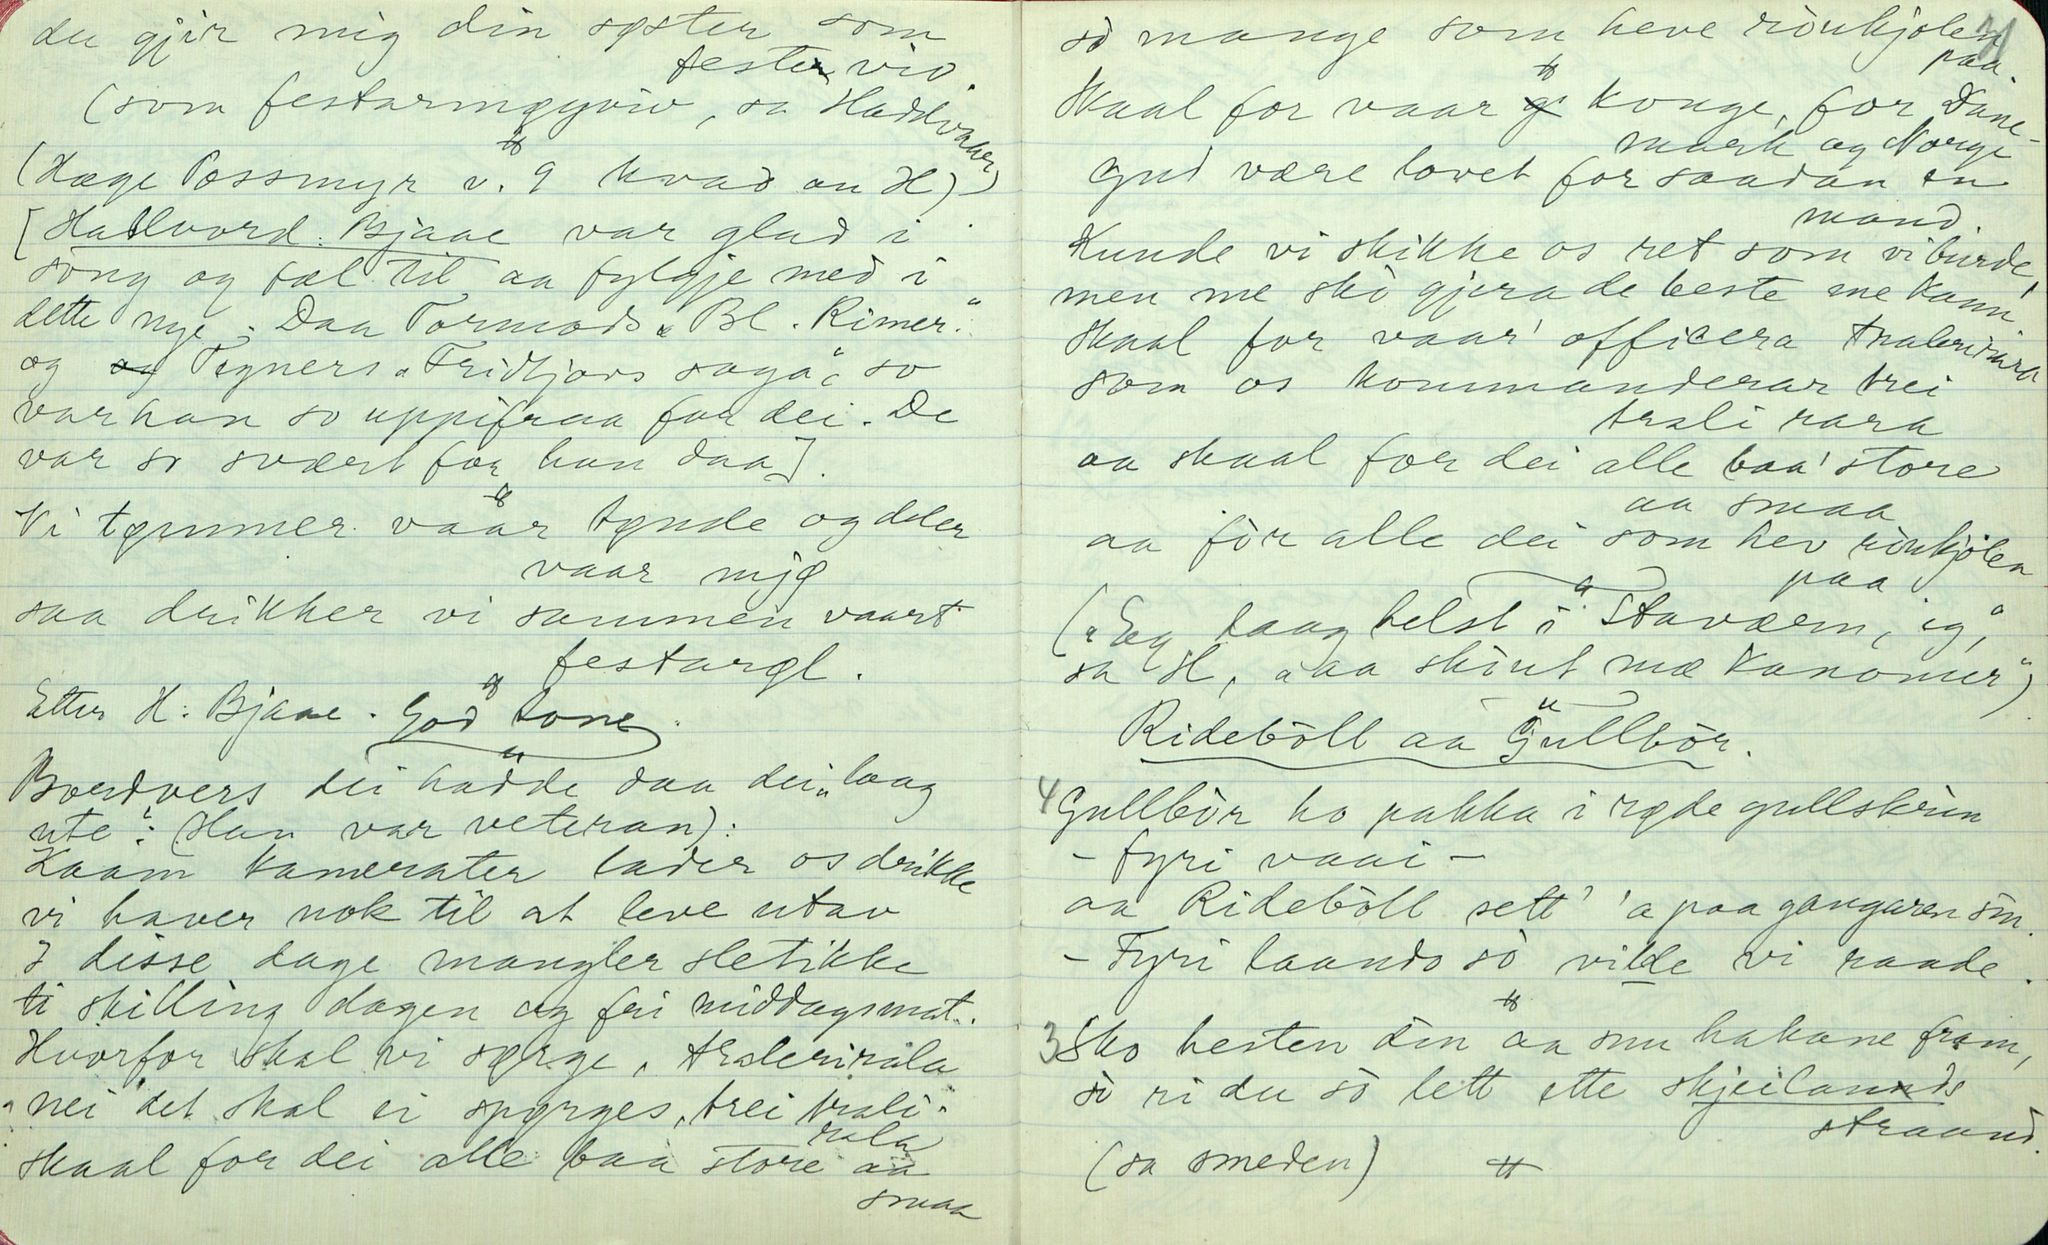 du gjer mig din syster som
feste viv
(som festarmøyviv, sa Haddvaar)
(Hæge Possmyr v. 9 kvad an H)
[Hallvord Bjaae var glad i
song og fæl til aa fylgje med i
dette nye. Daa Tormods „Bl. Rimer“
og Tegners „Fridtjovs saga“, so
var han so uppifraa for dei. De
var so svært for han daa].
Vi tømmer vaar tynde og deler
vaar mjø
saa drikker vi sammen vaart
festarøl.
Etter H. Bjaae. God tone.
Bordvers dei hadde daa dei „laag
ute“: (Han var veteran):
Kaam kamerater lader os drikke
vi haver nok til at leve utav
I disse dage mangler sletikke
ti skilling dagen og fri middagsmat.
Hvorfor skal vi sørge, tralerirala
nei det skal ei spørges, trei trali-
rala
skaal for dei alle baa store aa
smaa
31
so mange som heve rioukjolen
paa.
Skaal for vaar konge, for Dane-
mark og Norge
Gud være lovet for saadan en
mand
Kunde vi skikke os ret som vi burde,
men me sko gjera de beste me kann
Skaal for vaar' officera tralerirara
som os kommanderar trei
trali rara
aa skaal for dei alle baa' store
aa smaa
aa før alle dei som hev rioukjolen
paa
(„Eg laag helst i Staværn, eg“,
sa H, „aa skout mæ kanoner“)
Ridebøll aa Gullbør.
4 Gullbør ho pakka i røde gullskrin
– fyri vaai –
aa Ridebøll sett' 'a paa gangaren sin.
– Fyri laands so vilde vi raade.
3 Sko hesten din aa snu hakane fram,
so ri du so lett ette skjeilands
straand.
(sa smeden)